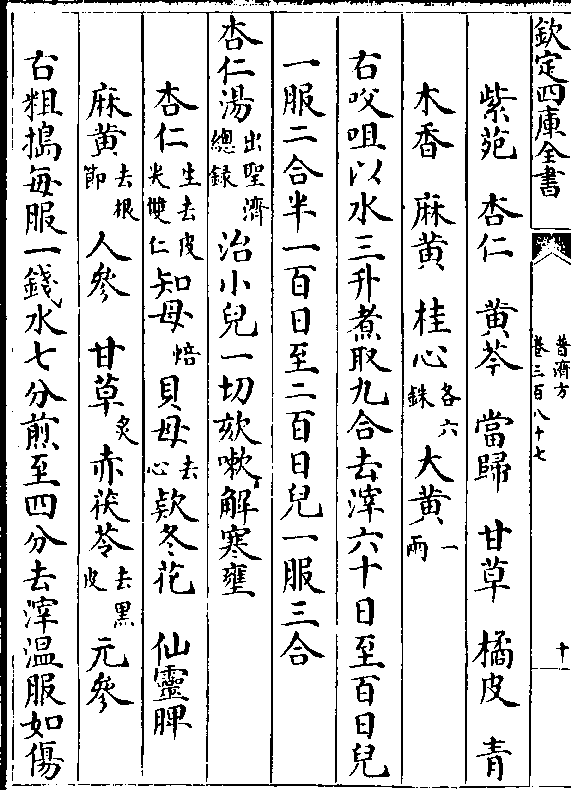 欽定四庫全書
普濟方
卷三百八十七
十
紫苑 杏仁 黄芩 當歸 甘草 橘皮 青
木香 麻黄 桂心各六銖 大黄一兩
右㕮咀以水三升煮取九合去滓六十日至百日兒
一服二合半一百日至二百日兒一服三合
杏仁湯出聖濟總録 治小兒一切欬嗽解寒壅
杏仁生去皮尖雙仁 知母焙 貝母去心 欵冬花 仙靈脾
麻黄去根節 人參 甘草炙 赤茯苓去黑皮 元參
右粗搗每服一錢水七分煎至四分去滓温服如傷